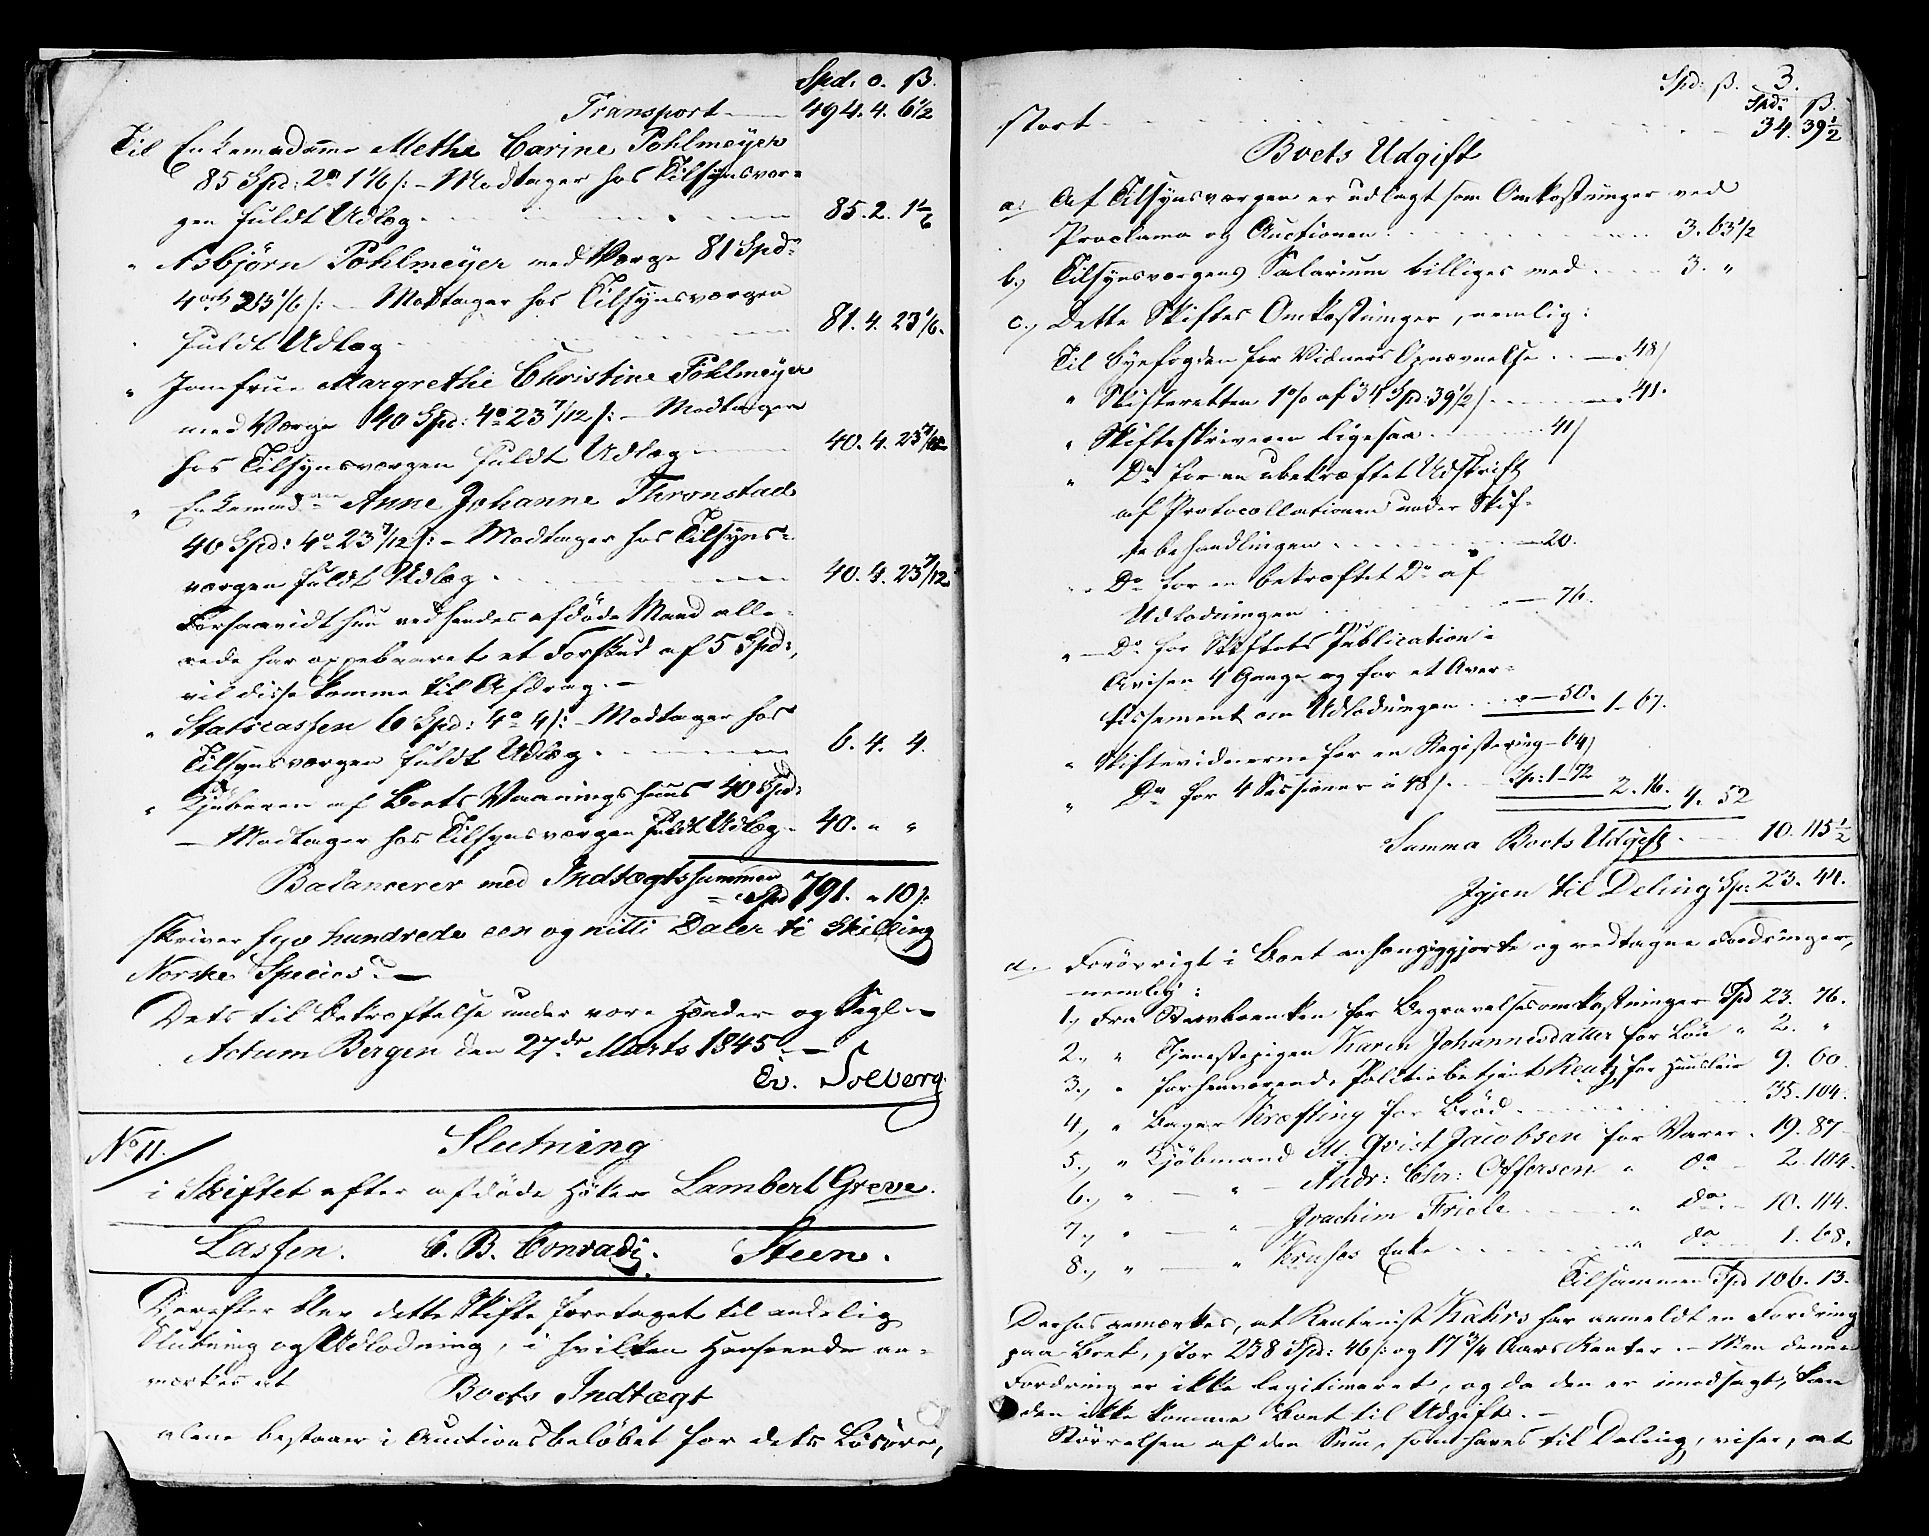 Spd. o. ß.
Transport 494. 4. 6 1/2
Til Enkemadame Methe Carine Pohlmeyer
85 Spd: 2 o 1 1/6 ß: - Modtager hos Tilsynsvær-
gen fuldt Udlæg 85. 2. 1 1/6
" Asbjörn Pohlmeyer med Værge 81 Spd:
4 ort 23 1/6 ß: - Modtager hos Tilsynsværgen
fuldt Udlæg 81. 4. 23 1/6.
" Jomfrue Margrethe Christine Pohlmeyer
med Værge 40 Spd: 4 o 23 7/12 ß: - Modtager
hos Tilsynsværgen fuldt Udlæg 40. 4. 23 7/12
" Enkemadme Anne Johanne Thronstad
40 Spd: 4 o 23 7/12 ß: - Modtager hos Tilsyns-
værgen fuldt Udlæg 40. 4. 23 7/12
Forsaavidt hun ved hendes afdøde Mand alle-
rede har oppebaaret et Forskud af 5 Spd:,
vil disse komme til Afdrag. -
" Statscassen 6 Spd: 4 o 4 ß: - Modtager hos
Tilsynsværgen fuldt Udlæg 6. 4. 4.
" Kjøberen af Boets Vaaningshuus 40 Spd:
- Modtager hos Tilsynsværgen fuldt Udlæg 40. " "
Balancerer med Indtægtssummen
Spd 791. " 10 ß:
skriver syv hundrede een og nitti Daler ti Skilling
Norske Species. -
Dets til Bekræftelse under vore Hænder og Segl. -
Actum Bergen den 27de Marts 1845. -
Ev. Solberg.
No 11.
Slutning
i Skiftet efter afdøde Høker Lambert Greve.
Lassen. C. B. Conradi. Steen.
Derefter blev dette Skifte foretaget til endelig
Slutning og Udlodning, i hvilken Henseende an-
mærkes at
Boets Indtægt
alene bestaaer i Auctionsbeløbet for dets Løsøre,
3.
Spd: ß.
Spd: ß.
stort 34. 39 1/2
Boets Udgift
a. Af Tilsynsværgen er udlagt som Omkostninger ved
Proclama og Auctionen 3. 63 1/2
b.) Tilsynsværgens Salarium billiges med 3. "
c.) Dette Skiftes Omkostninger, nemlig:
Til Byefogden for Vidners Opnævnelse 48 ß
" Skifteretten 1% af 34 Spd: 39 1/2 ß 41.
" Skifteskriveren ligesaa 41 ß
" Do for en ubekræftet Udskrift
af Protocollationen under Skif-
tebehandlingen 20.
" Do for en bekræftet Do af
Udlodningen 76.
" Do for Skiftets Publication i
Avisen 4 Gange og for et Aver-
tissement om Udlodningen 50. 1-67.
" Skiftevidnerne for en Registering 64 ß
" Do for 4 Sessioner à 48 ß. Sp: 1-72 2. 16. 4. 52
Summa Boets Udgift 10. 115 1/2
Igjen til Deling Sp: 23. 44.
d. Forövrigt i Boet anhængiggjorte og vedtagne Fordringer,
nemlig:
1.) Fra Stervboenken for Begravelsesomkostninger Spd 23. 76.
2.) " Tjenestepigen Karen Johannesdatter for Løn " 2. "
3.) " forhenværende Politiebetjent Reutz for Huusleie 9. 60.
4.) " Bager Kræfting for Brød 35. 104.
5.) " Kjøbmand M. Qvist Jacobsen for Varer 19. 87
6.) " — " — Andr: Chr: Offersen " do 2. 104.
7.) " — " — Joachim Friele " do 10. 114.
8.) " — " Kruses Enke " do 1. 68.
Tilsammen Spd 106. 13.
Derhos anmærkes, at Rentenist Kahrs har anmeldt en Fordring
paa Boet, stor 238 Spd: 46 ß: og 17 3/4 Aars Renter. - Men denne
Fordring er ikke legitimeret, og da den er imodsagt, kan
den ikke komme Boet til Udgift. -
Størrelsen af den Sum, som haves til Deling, viser, at